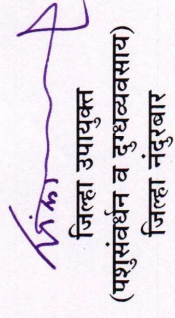 जिल्हा उपायुक्त
(पशुसंवर्धन व दुग्धव्यवसाय)
जिल्हा नंदुरबार